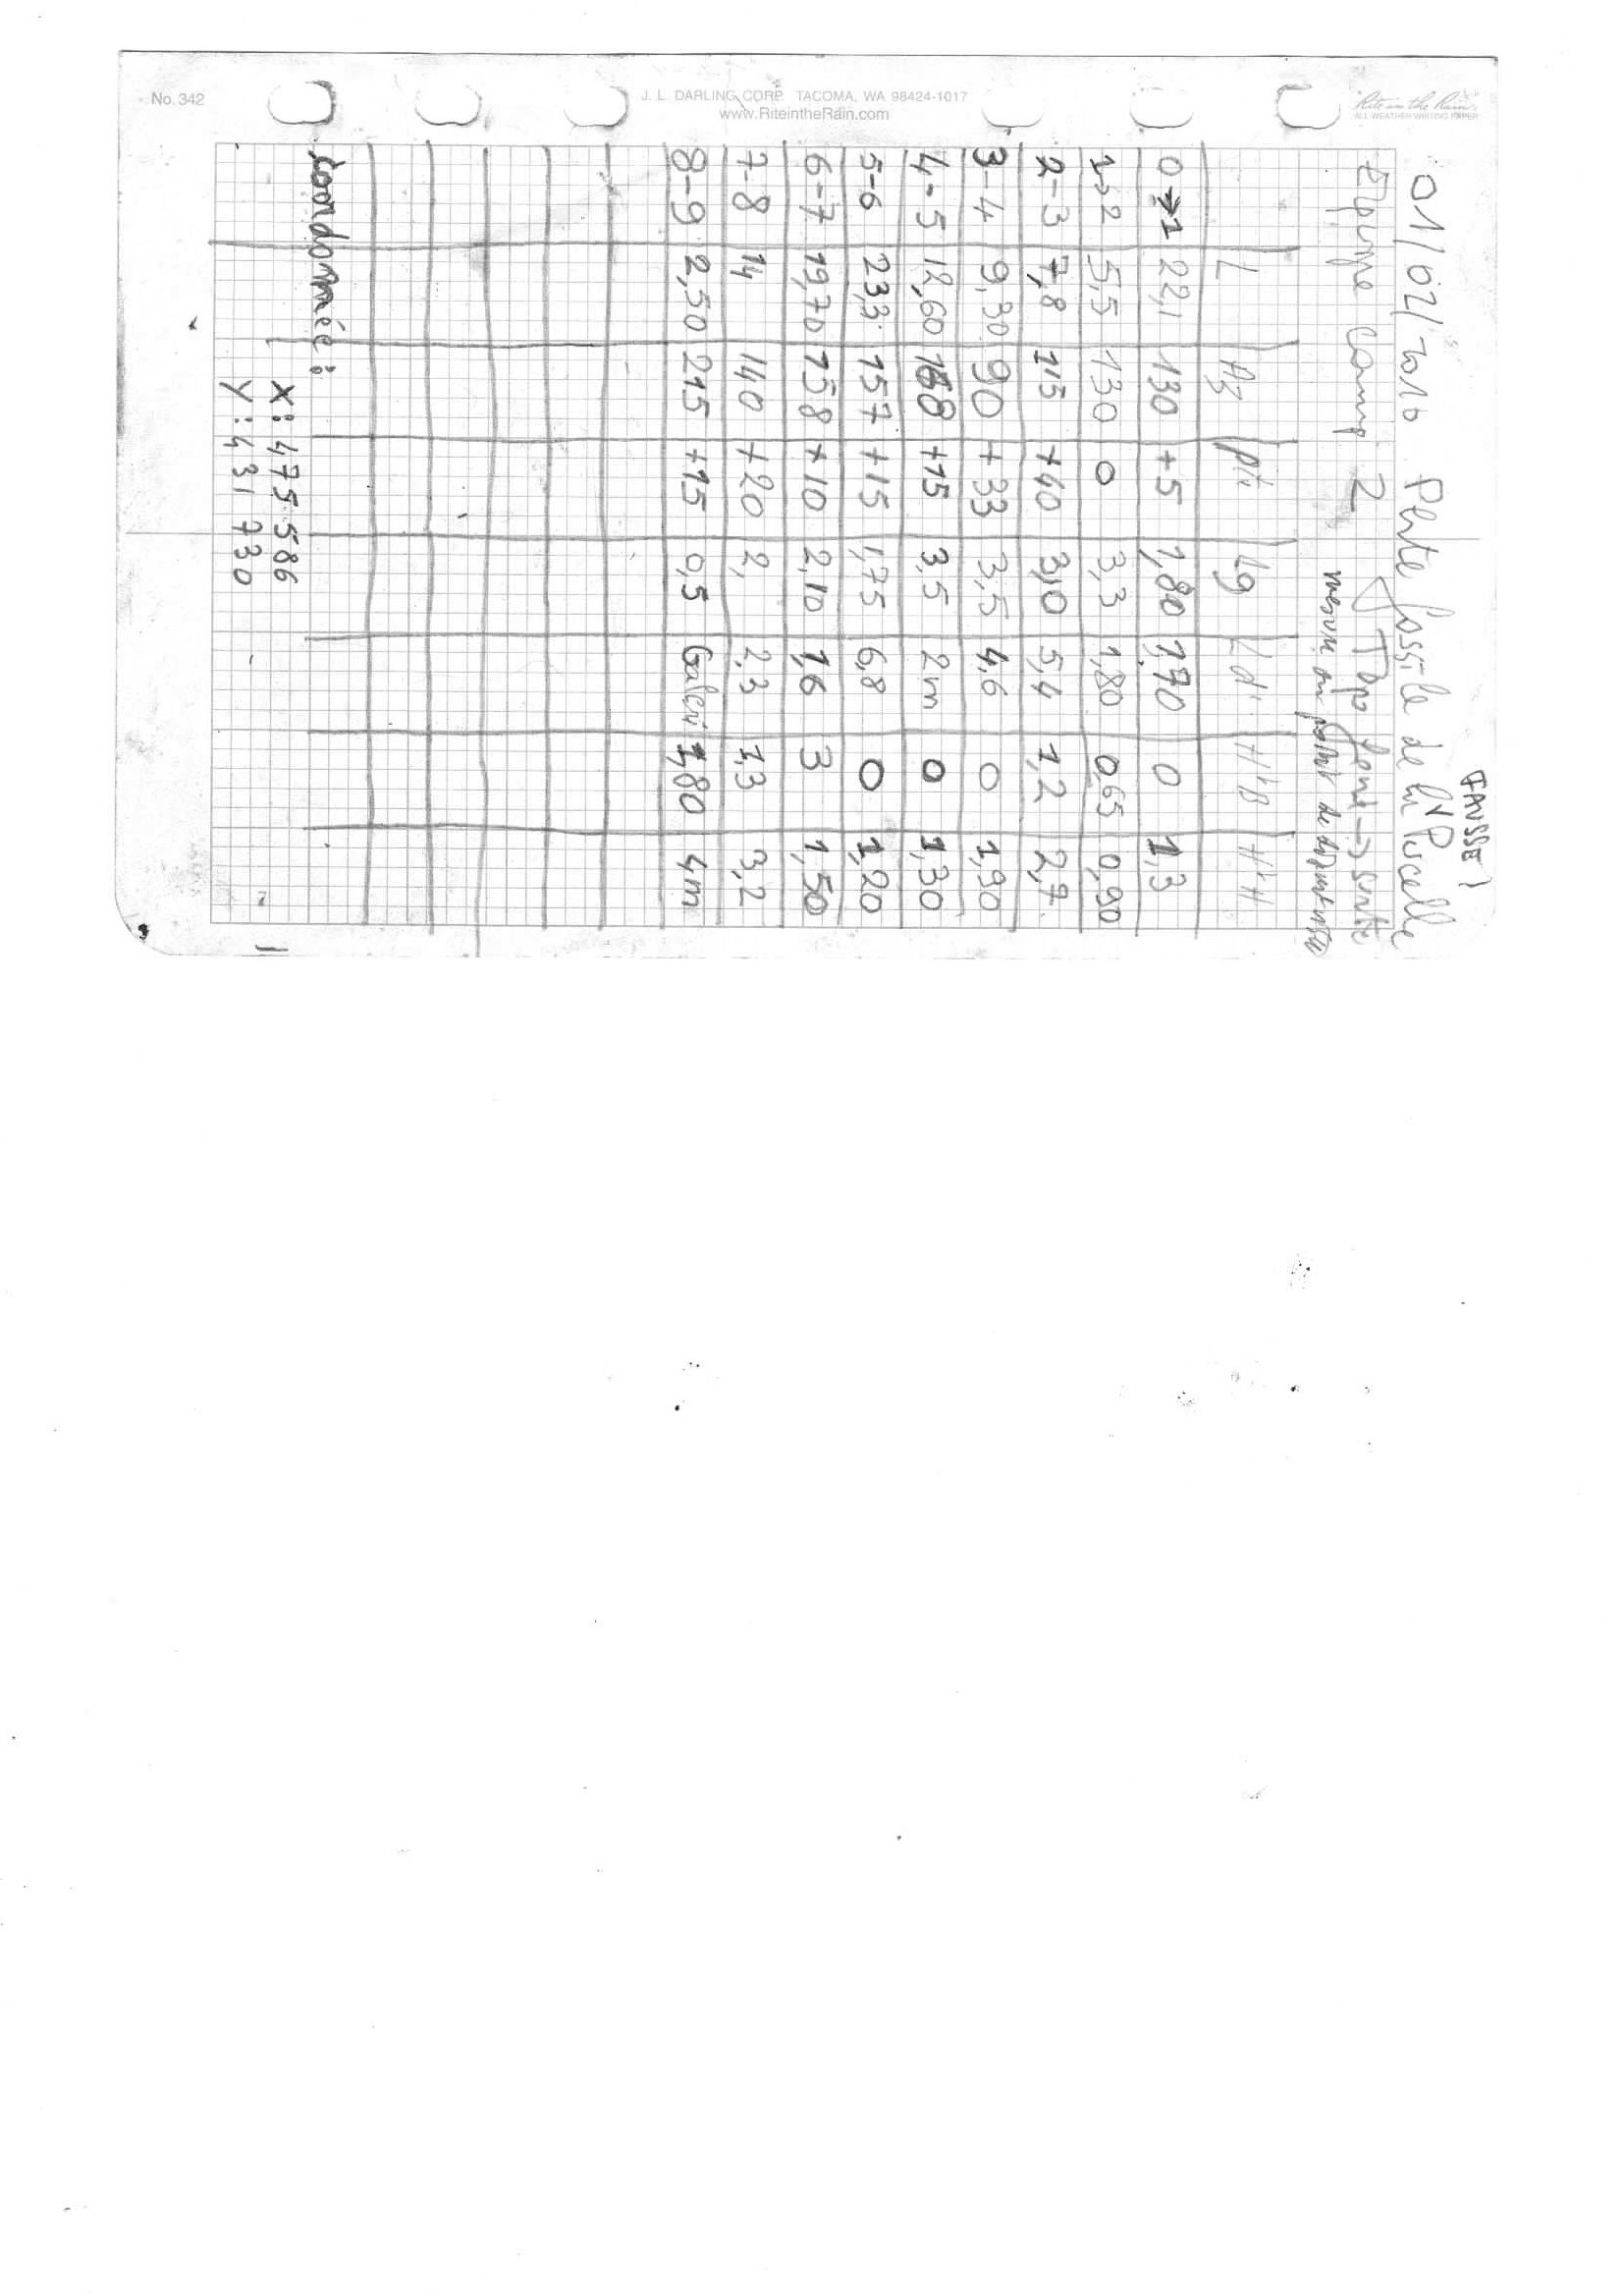 No. 342
J. L. DARLING CORP. TACOMA, WA 98424-1017
www.RiteintheRain.com
Rite in the Rain
ALL WEATHER WRITING PAPER
FAUSSE }
01/02/2010 Perte fossile de la Piscelle
Equipe Camp 2 Topo fond → sortie
mesure au point de départ visée
L Az pte lg L d. H'B H'H
0→1 22,1 130 +5 1,80 1,70 0 1,3
1→2 5,5 130 0 3,3 1,80 0,65 0,90
2-3 7,8 115 +40 3,0 5,4 1,2 2,7
3-4 9,30 90 +33 3,5 4,6 0 1,90
4-5 12,60 168 +15 3,5 2m 0 1,30
5-6 23,3 157 +15 1,75 6,8 0 1,20
6-7 19,70 158 +10 2,10 1,6 3 1,50
7-8 14 140 +20 2, 2,3 1,3 3,2
8-9 2,50 215 +15 0,5 Galeri 1,80 4m
Coordonnée :
X : 475 586
Y : 431 730